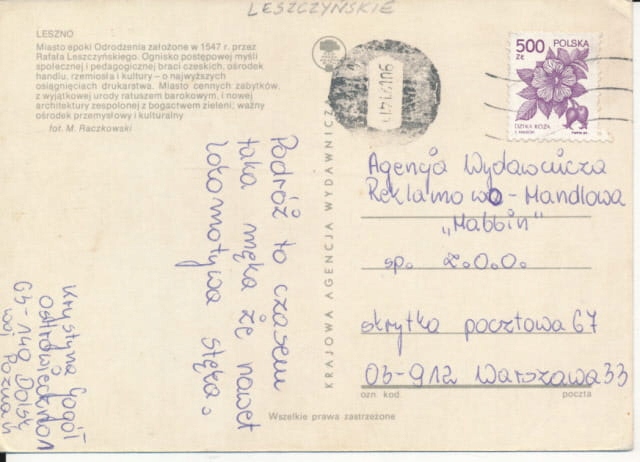 LESZCZYŃSKIE
LESZNO
Miasto epoki Odrodzenia założone w 1547 r. przez
Rafała Leszczyńskiego. Ognisko postępowej myśli
społecznej i pedagogicznej braci czeskich, ośrodek
handlu, rzemiosła i kultury – o najwyższych
osiągnięciach drukarstwa. Miasto cennych zabytków,
z wyjątkowej urody ratuszem barokowym, i nowej
architektury zespolonej z bogactwem zieleni; ważny
ośrodek przemysłowy i kulturalny
fot. M. Raczkowski
500
ZŁ
POLSKA
DZIKA RÓŻA
KRAJOWA AGENCJA WYDAWNICZA
Podróż to czasem
taka męka że nawet
lokomotywa stęka.
Krystyna Gogół
63-140 Dolsk
woj Poznań
Agencja Wydawnicza
Reklamowo-Handlowa
„Mabbin"
sp. z.o.o.
skrytka pocztowa 67
03-912 Warszawa 33
ozn kod
poczta
Wszelkie prawa zastrzeżone